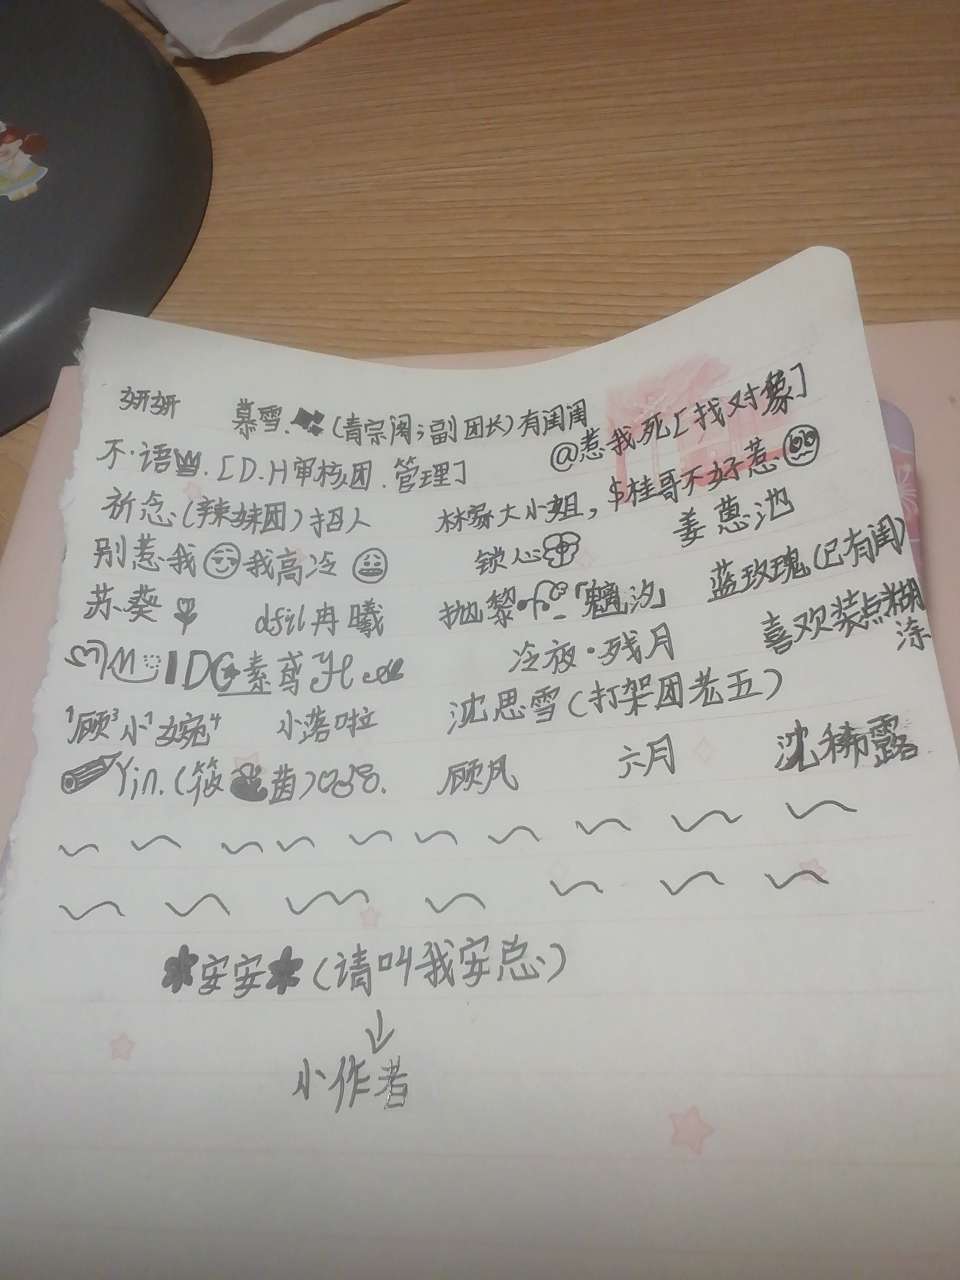 妍妍 慕雪.(青宗阁;副团长)有闺闺 @惹我死[找对象]
不·语.[D.H审核团.管理]
祈念(辣妹团)招人 林家大小姐, $桂哥不好惹
别惹我 我高冷 锁心 姜葱池
苏葵 dsil冉曦 抛黎「魑汐」 蓝玫瑰(已有闺)
IDG素鸢 冷夜·残月 喜欢装点糊涂
¹顾³小¹婉⁴ 小落啦 沈思雪(打架团老五)
Yin.(筱茵) 顾风 六月 沈稀露
安安(请叫我安总)
↓
小作者